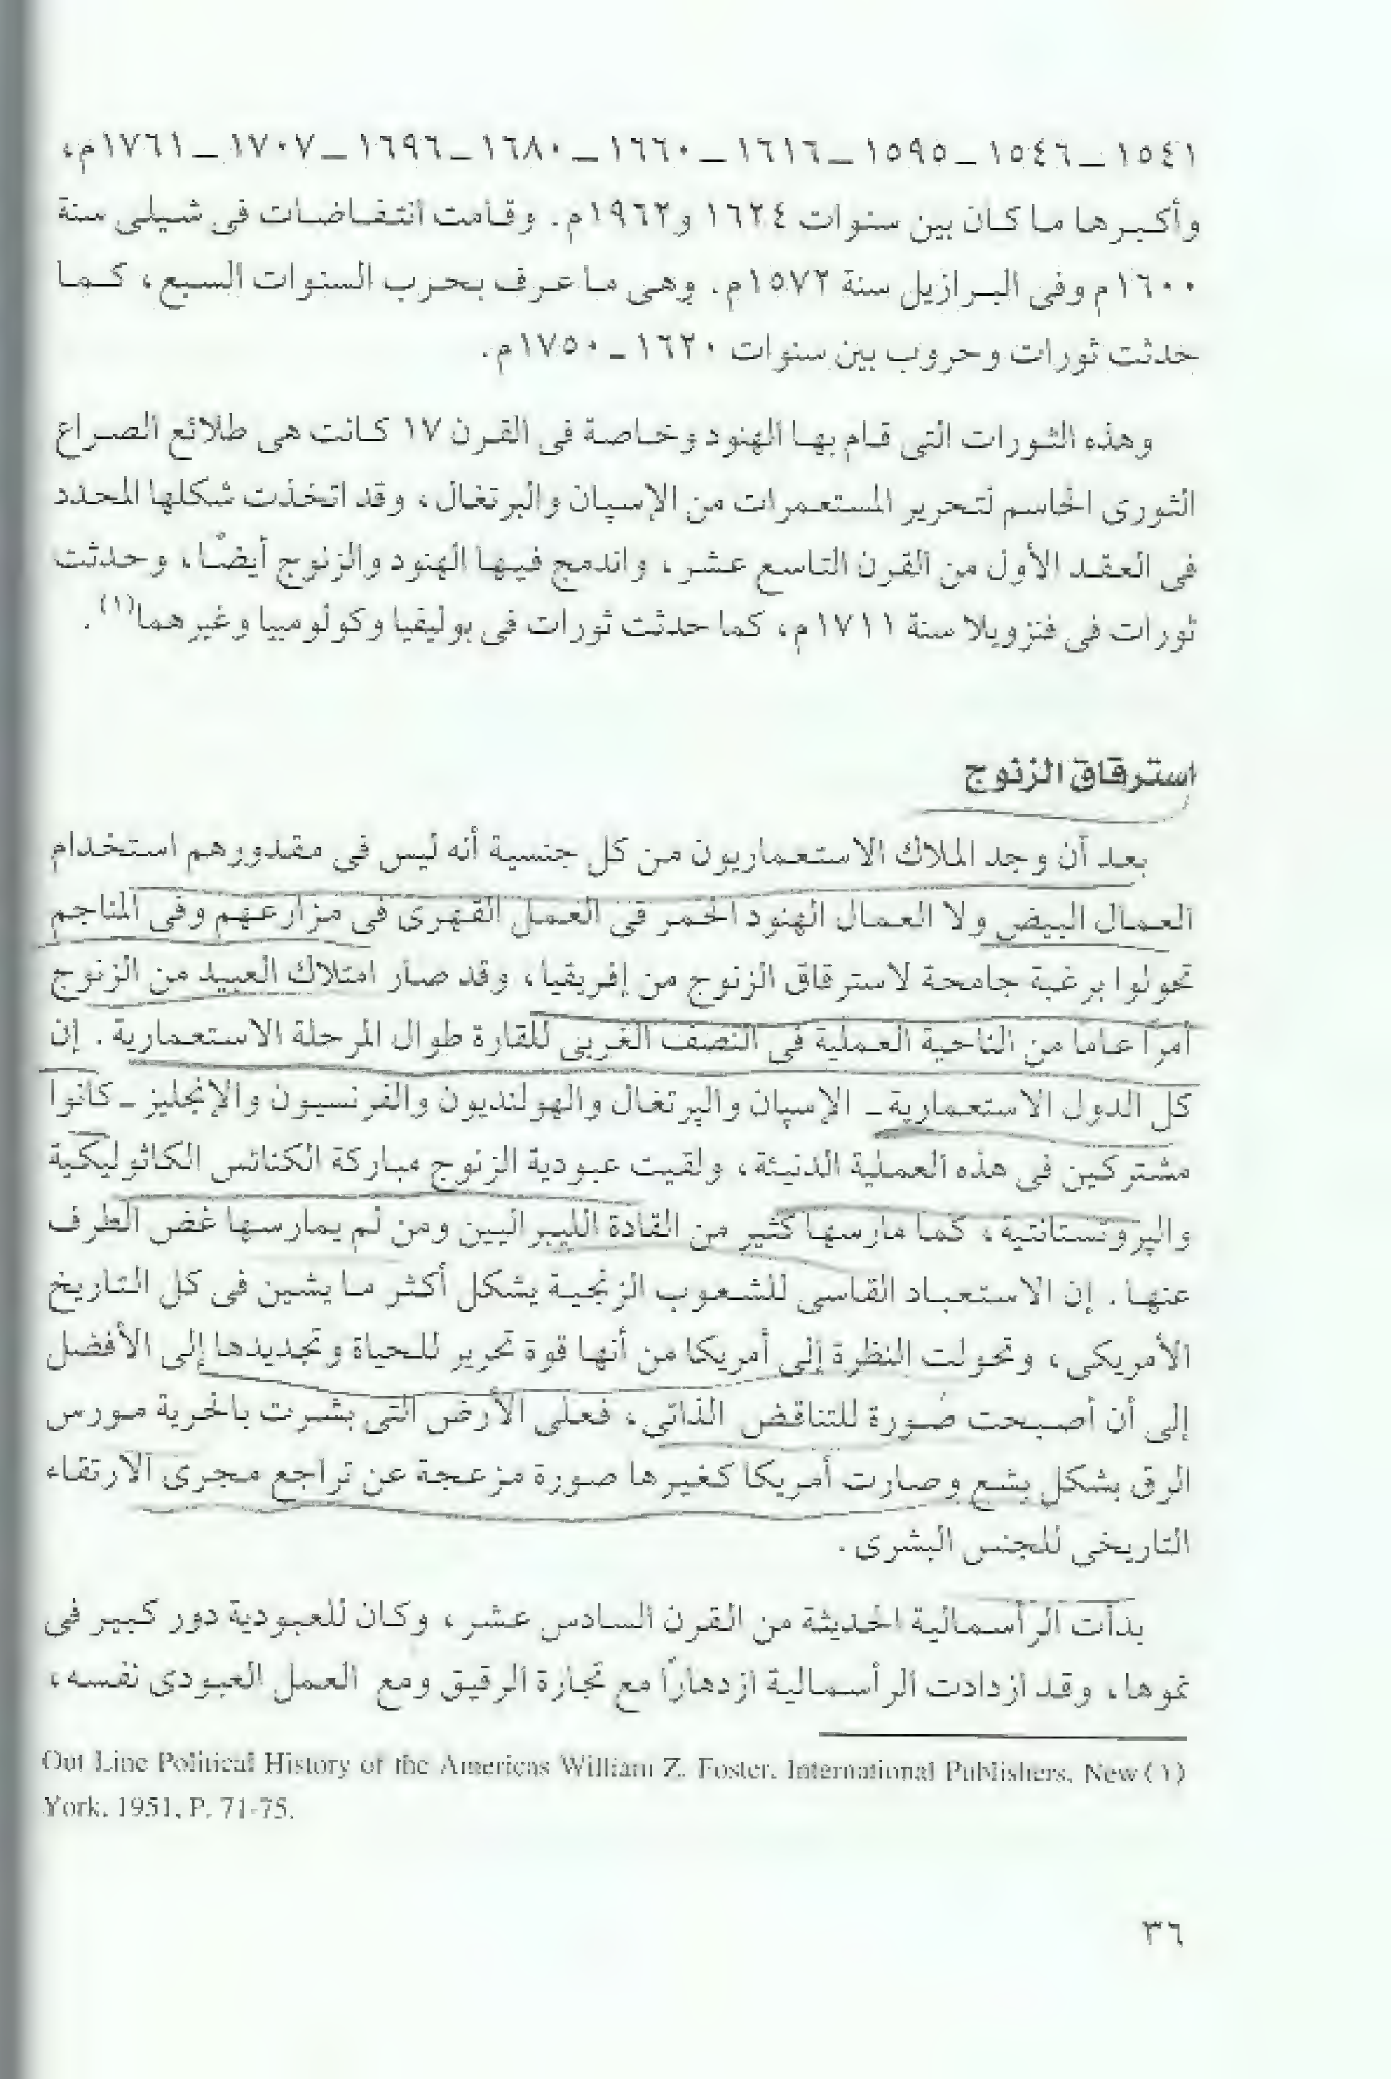 ١٥٤١ ـ ١٥٤٦ ـ ١٥٩٥ ـ ١٦١٦ ـ ١٦٦٠ ـ ١٦٨٠ ـ ١٦٩٦ ـ ١٧٠٧ ـ ١٧٦١م،
وأكبرها ما كان بين سنوات ١٦٢٤ و١٩٦٢م. وقامت انتفاضات فى شيلى سنة
١٦٠٠م وفى البرازيل سنة ١٥٧٢م. وهى ما عرف بحرب السنوات السبع، كما
حدثت ثورات وحروب بين سنوات ١٦٢٠ ـ ١٧٥٠م.
وهذه الثورات التى قام بها الهنود وخاصة فى القرن ١٧ كانت هى طلائع الصراع
الثورى الحاسم لتحرير المستعمرات من الإسپان والبرتغال، وقد اتخذت شكلها المحدد
فى العقد الأول من القرن التاسع عشر، واندمج فيها الهنود والزنوج أيضًا، وحدثت
ثورات فى فنزويلا سنة ١٧١١م، كما حدثت ثورات فى بوليڤيا وكولومبيا وغيرهما(١).
استرقاق الزنوج
بعد أن وجد الملاك الاستعماريون من كل جنسية أنه ليس فى مقدورهم استخدام
العمال البيض ولا العمال الهنود الحمر فى العمل القهرى فى مزارعهم وفى المناجم
تحولوا برغبة جامحة لاسترقاق الزنوج من إفريقيا، وقد صار امتلاك العبيد من الزنوج
أمرًا عاما من الناحية العملية فى النصف الغربى للقارة طوال المرحلة الاستعمارية. إن
كل الدول الاستعمارية ـ الإسپان والپرتغال والهولنديون والفرنسيون والإنجليز ـ كانوا
مشتركين فى هذه العملية الدنيئة، ولقيت عبودية الزنوج مباركة الكنائس الكاثوليكية
والپروتستانتية، كما مارسها كثير من القادة الليبراليين ومن لم يمارسها غض الطرف
عنها. إن الاستعباد القاسى للشعوب الزنجية يشكل أكثر ما يشين فى كل التاريخ
الأمريكى، وتحولت النظرة إلى أمريكا من أنها قوة تحرير للحياة وتجديدها إلى الأفضل
إلى أن أصبحت صُورة للتناقض الذاتى، فعلى الأرض التى بشرت بالحرية مورس
الرق بشكل بشع وصارت أمريكا كغيرها صورة مزعجة عن تراجع مجرى الارتقاء
التاريخى للجنس البشرى.
بدأت الرأسمالية الحديثة من القرن السادس عشر، وكان للعبودية دور كبير فى
نموها، وقد ازدادت الرأسمالية ازدهارًا مع تجارة الرقيق ومع العمل العبودى نفسه،
Out Line Political History of the Americas William Z. Foster. International Publishers. New (١)
York. 1951, P. 71-75.
٣٦